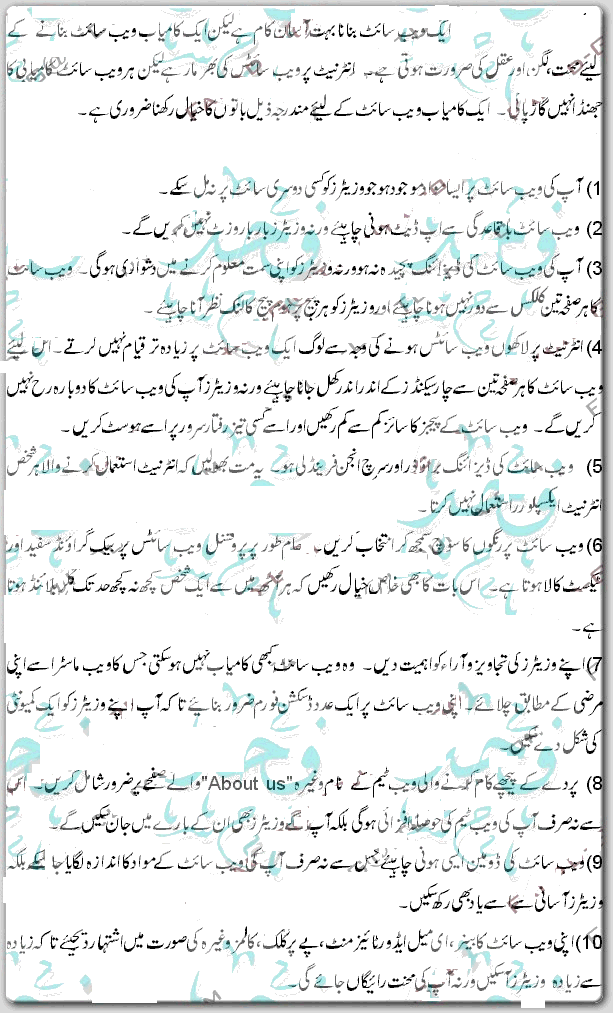 ایک ویب سائٹ بنانا بہت آسان کام ہے لیکن ایک کامیاب ویب سائٹ بنانے کے
لیئے محنت، لگن اور عقل کی ضرورت ہوتی ہے۔ انٹرنیٹ پر ویب سائٹس کی بھرمار ہے لیکن ہر ویب سائٹ کامیابی کا
جھنڈا نہیں گاڑ پاتی۔ ایک کامیاب ویب سائٹ کے لیئے مندرجہ ذیل باتوں کا خیال رکھنا ضروری ہے۔
1) آپ کی ویب سائٹ پر ایسا مواد موجود ہو جو وزیٹرز کو کسی دوسری سائٹ پر نہ مل سکے۔
2) ویب سائٹ باقاعدگی سے اپ ڈیٹ ہونی چاہیئے ورنہ وزیٹرز بار بار وزٹ نہیں کریں گے۔
3) آپ کی ویب سائٹ کی ڈیزائننگ پیچیدہ نہ ہو ورنہ وزیٹرز کو اپنی سمت معلوم کرنے میں دشواری ہوگی۔ ویب سائٹ
کا ہر صفحہ تین کلکس سے دور نہیں ہونا چاہیئے اور وزیٹرز کو ہر پیج پر ہوم پیج کا لنک نظر آنا چاہیئے۔
4) انٹرنیٹ پر لاکھوں ویب سائٹس ہونے کی وجہ سے لوگ ایک ویب سائٹ پر زیادہ تر قیام نہیں کرتے۔ اس لیئے
ویب سائٹ کا ہر صفحہ تین سے چار سیکنڈز کے اندر اندر کھل جانا چاہیئے ورنہ وزیٹرز آپ کی ویب سائٹ کا دوبارہ رخ نہیں
کریں گے۔ ویب سائٹ کے پیجز کا سائز کم سے کم رکھیں اور اسے کسی تیز رفتار سرور پر اسے ہوسٹ کریں۔
5) ویب سائٹ کی ڈیزائننگ براؤزر اور سرچ انجن فرینڈلی ہو۔ یہ مت بھولیں کہ انٹرنیٹ استعمال کرنے والا ہر شخص
انٹرنیٹ ایکسپلورر استعمال نہیں کرتا۔
6) ویب سائٹ پر رنگوں کا سوچ سمجھ کر انتخاب کریں۔ عام طور پر پروفشنل ویب سائٹس پر بیک گراؤنڈ سفید اور
ٹیکسٹ کالا ہوتا ہے۔ اس بات کا بھی خاص خیال رکھیں کہ ہر میں سے ایک شخص کچھ نہ کچھ حد تک کلر بلائنڈ ہوتا
ہے۔
7) اپنے وزیٹرز کی تجاویز و آراء کو اہمیت دیں۔ وہ ویب سائٹ کبھی کامیاب نہیں ہوسکتی جس کا ویب ماسٹر اسے اپنی
مرضی کے مطابق چلائے۔ اپنی ویب سائٹ پر ایک عدد ڈسکشن فورم ضرور بنائیے تاکہ آپ اپنے وزیٹرز کو ایک کمیونٹی
کی شکل دے سکیں۔
8) پردے کے پیچھے کام کرنے والی ویب ٹیم کے نام وغیرہ "About us" والے صفحے پر ضرور شامل کریں۔ اس
سے نہ صرف آپ کی ویب ٹیم کی حوصلہ افزائی ہوگی بلکہ آپ کے وزیٹرز بھی ان کے بارے میں جان سکیں گے۔
9) ویب سائٹ کی ڈومین ایسی ہونی چاہیئے جس سے نہ صرف آپ کی ویب سائٹ کے مواد کا اندازہ لگایا جا سکے بلکہ
وزیٹرز آسانی سے اسے یاد بھی رکھ سکیں۔
10) اپنی ویب سائٹ کا بینر، ای میل ایڈورٹائیزمنٹ، پے پر کلک، کالمز وغیرہ کی صورت میں اشتہار دیجیئے تاکہ زیادہ
سے زیادہ وزیٹرز آسکیں ورنہ آپ کی محنت رائیگاں جائے گی۔